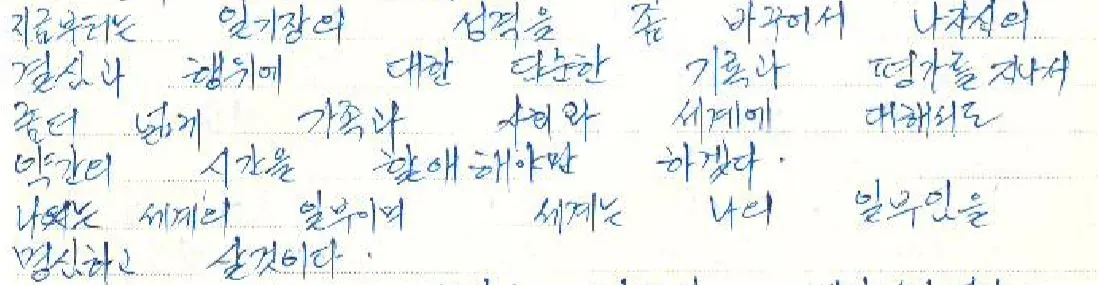 지금부터는 일기장의 성격을 좀 바꾸어서 나자신의
결심과 행위에 대한 단순한 기록과 평가를 지나서
좀더 넓게 가족과 사회와 세계에 대해서도
약간의 시간을 할애해야만 하겠다.
나는 세계의 일부이며 세계는 나의 일부임을
명심하고 살것이다.